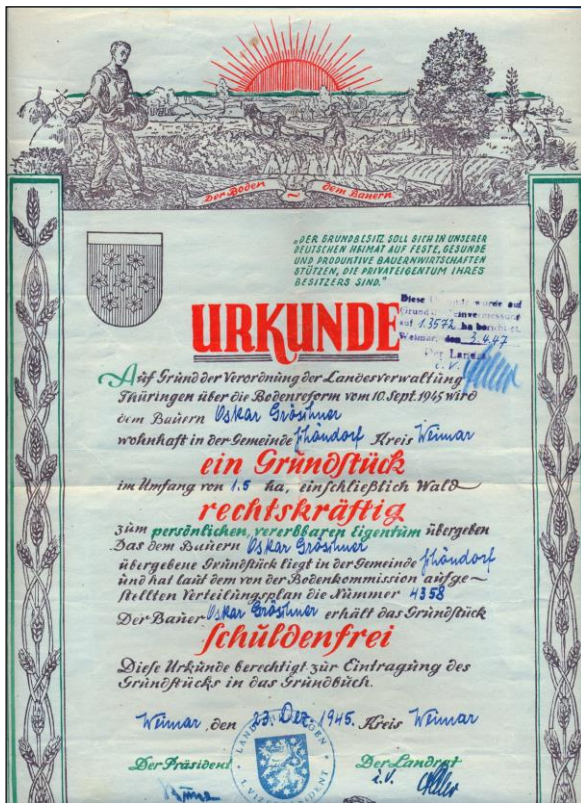 Der Boden ~ dem Bauern
„DER GRUNDBESITZ SOLL SICH IN UNSERER
DEUTSCHEN HEIMAT AUF FESTE, GESUNDE
UND PRODUKTIVE BAUERNWIRTSCHAFTEN
STÜTZEN, DIE PRIVATEIGENTUM IHRES
BESITZERS SIND."
URKUNDE
Diese wurde auf
Grund vermessung
auf 1.3572 ha berichtigt.
Weimar, den 3.4.47
Der Landrat
i.V.
Auf Grund der Verordnung der Landesverwaltung
Thüringen über die Bodenreform vom 10. Sept. 1945 wird
dem Bauern Oskar Gröschner
wohnhaft in der Gemeinde Schöndorf Kreis Weimar
ein Grundstück
im Umfang von 1.5 ha, einschließlich Wald
rechtskräftig
zum persönlichen, vererbbaren Eigentum übergeben
Das dem Bauern Oskar Gröschner
übergebene Grundstück liegt in der Gemeinde Schöndorf
und hat laut dem von der Bodenkommission aufge-
stellten Verteilungsplan die Nummer 4358
Der Bauer Oskar Gröschner erhält das Grundstück
schuldenfrei
Diese Urkunde berechtigt zur Eintragung des
Grundstücks in das Grundbuch.
Weimar, den 23. Dez. 1945. Kreis Weimar
Der Präsident Der Landrat
i.V.